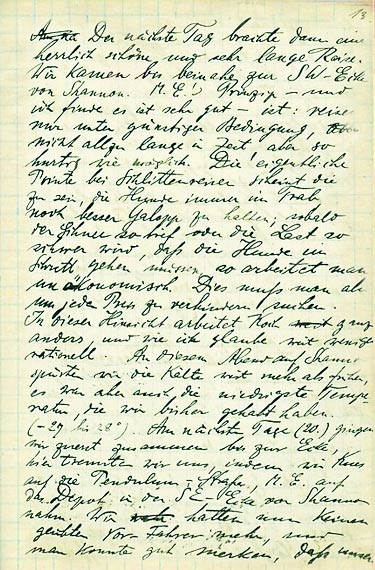 13
Der nächste Tag brachte dann eine
herrlich schöne und sehr lange Reise.
Wir kamen bis beinahe zur SW-Ecke
von Shannon. M. E.'s Prinzip - und
ich finde es ist sehr gut - ist: reise
nur unter günstiger Bedingung,
nicht allzu lange in Zeit aber so
hurtig wie möglich. Die eigentliche
Pointe bei Schlittenreisen scheint die
zu sein, die Hunde immer im Trab
noch besser Galopp zu halten; sobald
der Schnee so tief oder die Last so
schwer wird, daß die Hunde im
Schritt gehen müssen, so arbeitet man
unökonomisch. Dies muß man also
um jeden Preis zu verhindern suchen.
In dieser Hinsicht arbeitet Koch ganz
anders, und wie ich glaube weit weniger
rationell. An diesem Abend auf Shannon
spürten wir die Kälte weit mehr als früher,
es war aber auch die niedrigste Tempe-
ratur, die wir bisher gehabt haben.
(-27 bis 28°). Am nächsten Tage (20.) gingen
wir zuerst zusammen bis zur Ecke,
hier trennten wir uns, indem wir Kurs
auf die Pendulum-Straße, M. E. auf
das Depot in der SE-Ecke von Shannon
nahm. Wir hatten nun keinen
geübten Vor-Fahrer mehr, und
man konnte gut merken, daß unsere